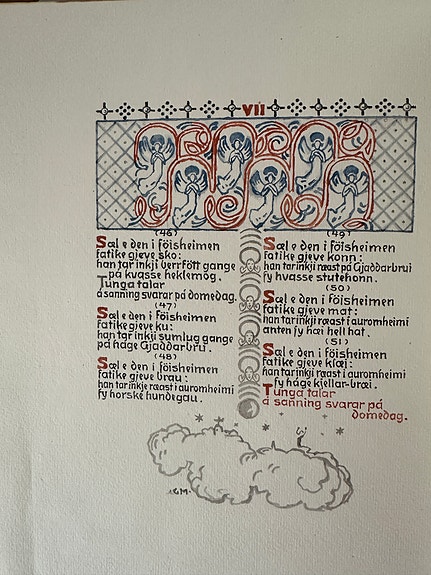 VII
(46)
Sæl e den i föisheimen
fatike gjeve sko:
han tar inkji berrfött gange
på kvasse heklemog.
Tunga talar
å sanning svarar på domedag.
(47)
Sæl e den i föisheimen
fatike gjeve ku:
han tar inkji sumlug gange
på håge Gjaddarbru.
(48)
Sæl e den i föisheimen
fatike gjeve brau:
han tar inkje ræast i auromheimi
fy horske hundegau.
(49)
Sæl e den i föisheimen
fatike gjeve konn:
han tar inkji ræast på Gjaddarbrui
fy hvasse stutehonn.
(50)
Sæl e den i föisheimen
fatike gjeve mat:
han tar inkji ræast i auromheimi
anten fy hæi hell hat.
(51)
Sæl e den i föisheimen
fatike gjeve klæi:
han tar inkji ræast i auromheimi
fy håge kjellar-bræi.
Tunga talar
å sanning svarar på
domedag.
GM